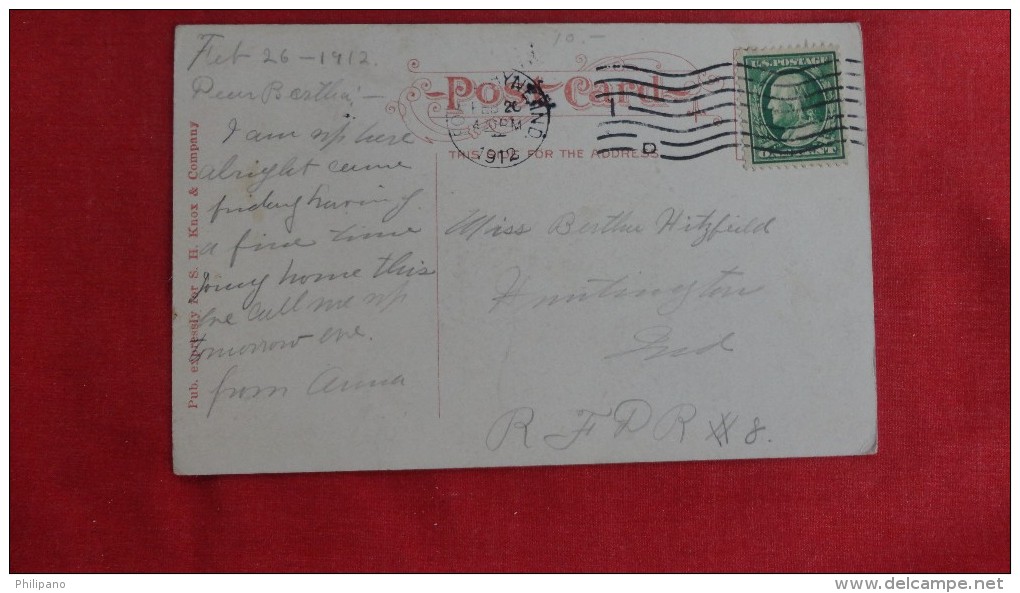 10.-
Feb 26-1912
Dear Bertha -
I am up here
alright came
friday having
a fine time
going home this
eve call me up
tomorrow eve.
from Anna
Pub. expressly for S. H. Knox & Company
Post Card
THIS SIDE FOR THE ADDRESS
WAYNE, IND.
FEB 26
4-PM
1912
1
D
U.S. POSTAGE
ONE CENT
Miss Bertha Hitzfield
Huntington
Ind
R F D R # 8.
Philipano
www.delcampe.net